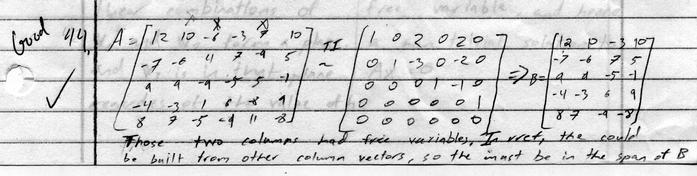 Good 44. A = [12 10 -6 -3 7 10] TI [1 0 2 0 2 0] [12 10 -3 10]
-7 -6 4 7 -9 5 ~ 0 1 -3 0 -2 0 ⇒ B = -7 -6 7 5
9 9 -9 -5 5 -1 0 0 0 1 -1 0 9 9 -5 -1
-4 -3 1 6 -8 9 0 0 0 0 0 1 -4 -3 6 9
8 7 -5 -9 11 -8 0 0 0 0 0 0 8 7 -9 -8
Those two columns had free variables, In rref, the could
be built from other column vectors, so the must be in the span of B